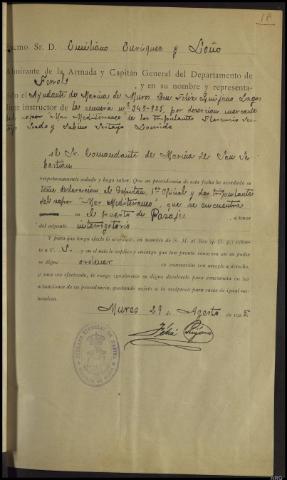 18
Excmo Sr. D. Emiliano Enríquez y Loño
Almirante de la Armada y Capitán General del Departamento de
Ferrol y en su nombre y representa-
ción el Ayudante de Marina de Muros Don Félix Quijano Lagos
Juez instructor de la sumaria nº 349-925, por desercion mercante
del vapor "Mar Mediterraneo" de los tripulantes Florencio
y Sabino
A el Sr. Comandante de Marina de San Se-
bastian
respetuosamente saludo y hago saber: Que en providencia de esta fecha he acordado se
tome declaracion al Capitan, 1er Oficial y dos tripulantes
del vapor "Mar Mediterraneo", que se encuentra
en el puerto de Pasajes, a tenor
del adjunto interrogatorio
Y para que tenga efecto lo acordado, en nombre de S. M. el Rey (q. D. g.) exhorto
a V. S. y en el mío le suplico y encargo que tan pronto como vea en su poder
se digne ordenar su cumentación con arreglo a derecho,
y una vez efectuado, le ruego igualmente se digne devolverlo para constancia en las
actuaciones de su procedencia, quedando sujeto a la recíproca para casos de igual na-
turaleza.
Muros 29 de Agosto de 192
Félix Quijano